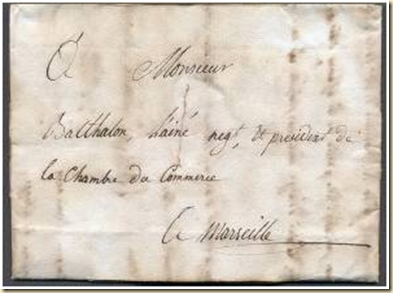 A Monsieur
Balthalon, l'ainé negt, & president de
la Chambre du Commerce
A Marseille